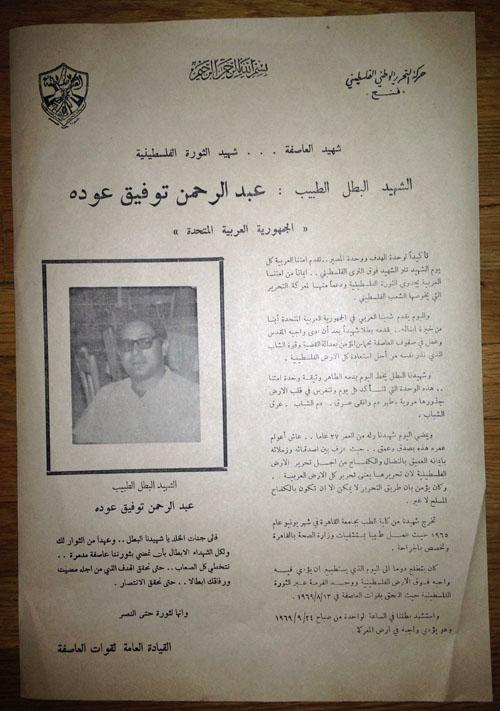 بسم الله الرحمن الرحيم
حركة التحرير الوطني الفلسطيني
- فتح -
شهيد العاصفة . . . شهيد الثورة الفلسطينية
الشهيد البطل الطبيب : عبد الرحمن توفيق عوده
« الجمهورية العربية المتحدة »
تأكيدا لوحدة الهدف ووحدة المصير .. تقدم امتنا العربية كل
يوم الشهيد تلو الشهيد فوق الثرى الفلسطيني . . ايمانا من امتنا
العربية بجدوى الثورة الفلسطينية ودعما منها لمعركة التحرير
التي يخوضها الشعب الفلسطيني .
واليوم يقدم شعبنا العربي في الجمهورية العربية المتحدة أبنا
من خيرة ابنائه .. يقدمه بطلا شهيدا بعد أن ادى واجبه المقدس
وعمل في صفوف العاصفة بحماس المؤمن بعدالة القضية وقوة الشاب
الذي نذر نفسه من أجل استعادة كل الارض الفلسطينية .
وشهيدنا البطل يخط اليوم بدمه الطاهر وثيقة وحدة امتنا
. . هذه الوحدة التي تتأكد كل يوم وتنغرس في قلب الارض
جذورها مروية بأطهر دم وانقى عرق . . دم الشباب . . عرق
الشباب .
ويمضي اليوم شهيدنا وله من العمر ٢٧ عاما . . عاش أعوام
عمره هذه بصدق وعمق . . حيث عرف بين اصدقائه وزملائه
بايمانه العميق بالنضال والكفاح من اجل تحرير الارض
الفلسطينية لان تحريرها يعني تحرير كل الارض العربية . .
وكان يؤمن بان طريق التحرير لا يمكن الا ان تكون بالكفاح
المسلح لا غير .
تخرج شهيدنا من كلية الطب بجامعة القاهرة في شهر يونيو عام
١٩٦٥ حيث عمل طبيبا بمستشفيات وزارة الصحة بالقاهرة
وتخصص بالجراحة .
كان يتطلع دوما الى اليوم الذي يستطيع ان يؤدي فيه
واجبه فوق الارض الفلسطينية ووجد الفرصة عبر الثورة
الفلسطينية حيث التحق بقوات العاصفة في ١٩٦٩/٨/١٣ .
واستشهد بطلنا في الساعة الواحدة من صباح ١٩٦٩/٩/٢٤
وهو يؤدي واجبه في ارض المعركة .
الشهيد البطل الطبيب
عبد الرحمن توفيق عوده
فالى جنات الخلد يا شهيدنا البطل . . وعهدا من الثوار لك
ولكل الشهداء الابطال بأن تمضي بثورتنا عاصفة مدمرة . .
تتخطى كل الصعاب . . حتى تحقق الهدف الذي من اجله مضيت
ورفاقك ابطالا . . حتى تحقق الانتصار .
وانها لثورة حتى النصر
القيادة العامة لقوات العاصفة